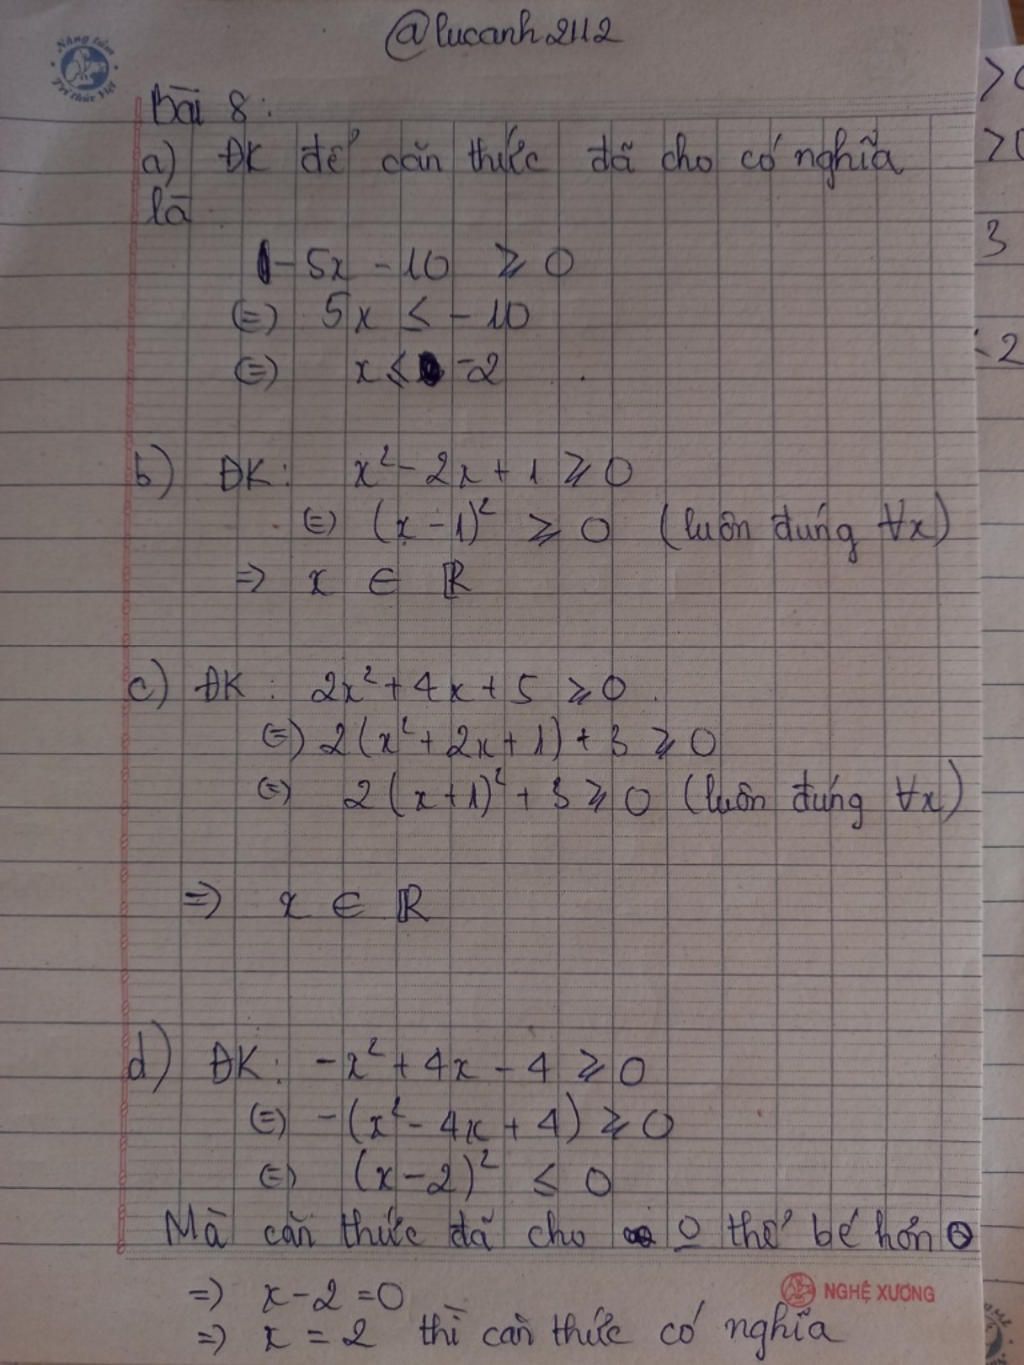 @lucanh2112
Nâng tầm
Trí thức Việt
Bài 8:
a) ĐK để căn thức đã cho có nghĩa
là
-5x - 10 ≥ 0
(=) 5x ≤ -10
(=) x ≤ -2
b) ĐK: x² - 2x + 1 ≥ 0
(=) (x - 1)² ≥ 0 (luôn đúng ∀x)
=> x ∈ ℝ
c) ĐK: 2x² + 4x + 5 ≥ 0
(=) 2(x² + 2x + 1) + 3 ≥ 0
(=) 2(x+1)² + 3 ≥ 0 (luôn đúng ∀x)
=> x ∈ ℝ
d) ĐK: -x² + 4x - 4 ≥ 0
(=) -(x² - 4x + 4) ≥ 0
(=) (x-2)² ≤ 0
Mà căn thức đã cho o thể bé hơn 0
=> x - 2 = 0
NGHỆ XƯƠNG
=> x = 2 thì căn thức có nghĩa
>
>
3
2